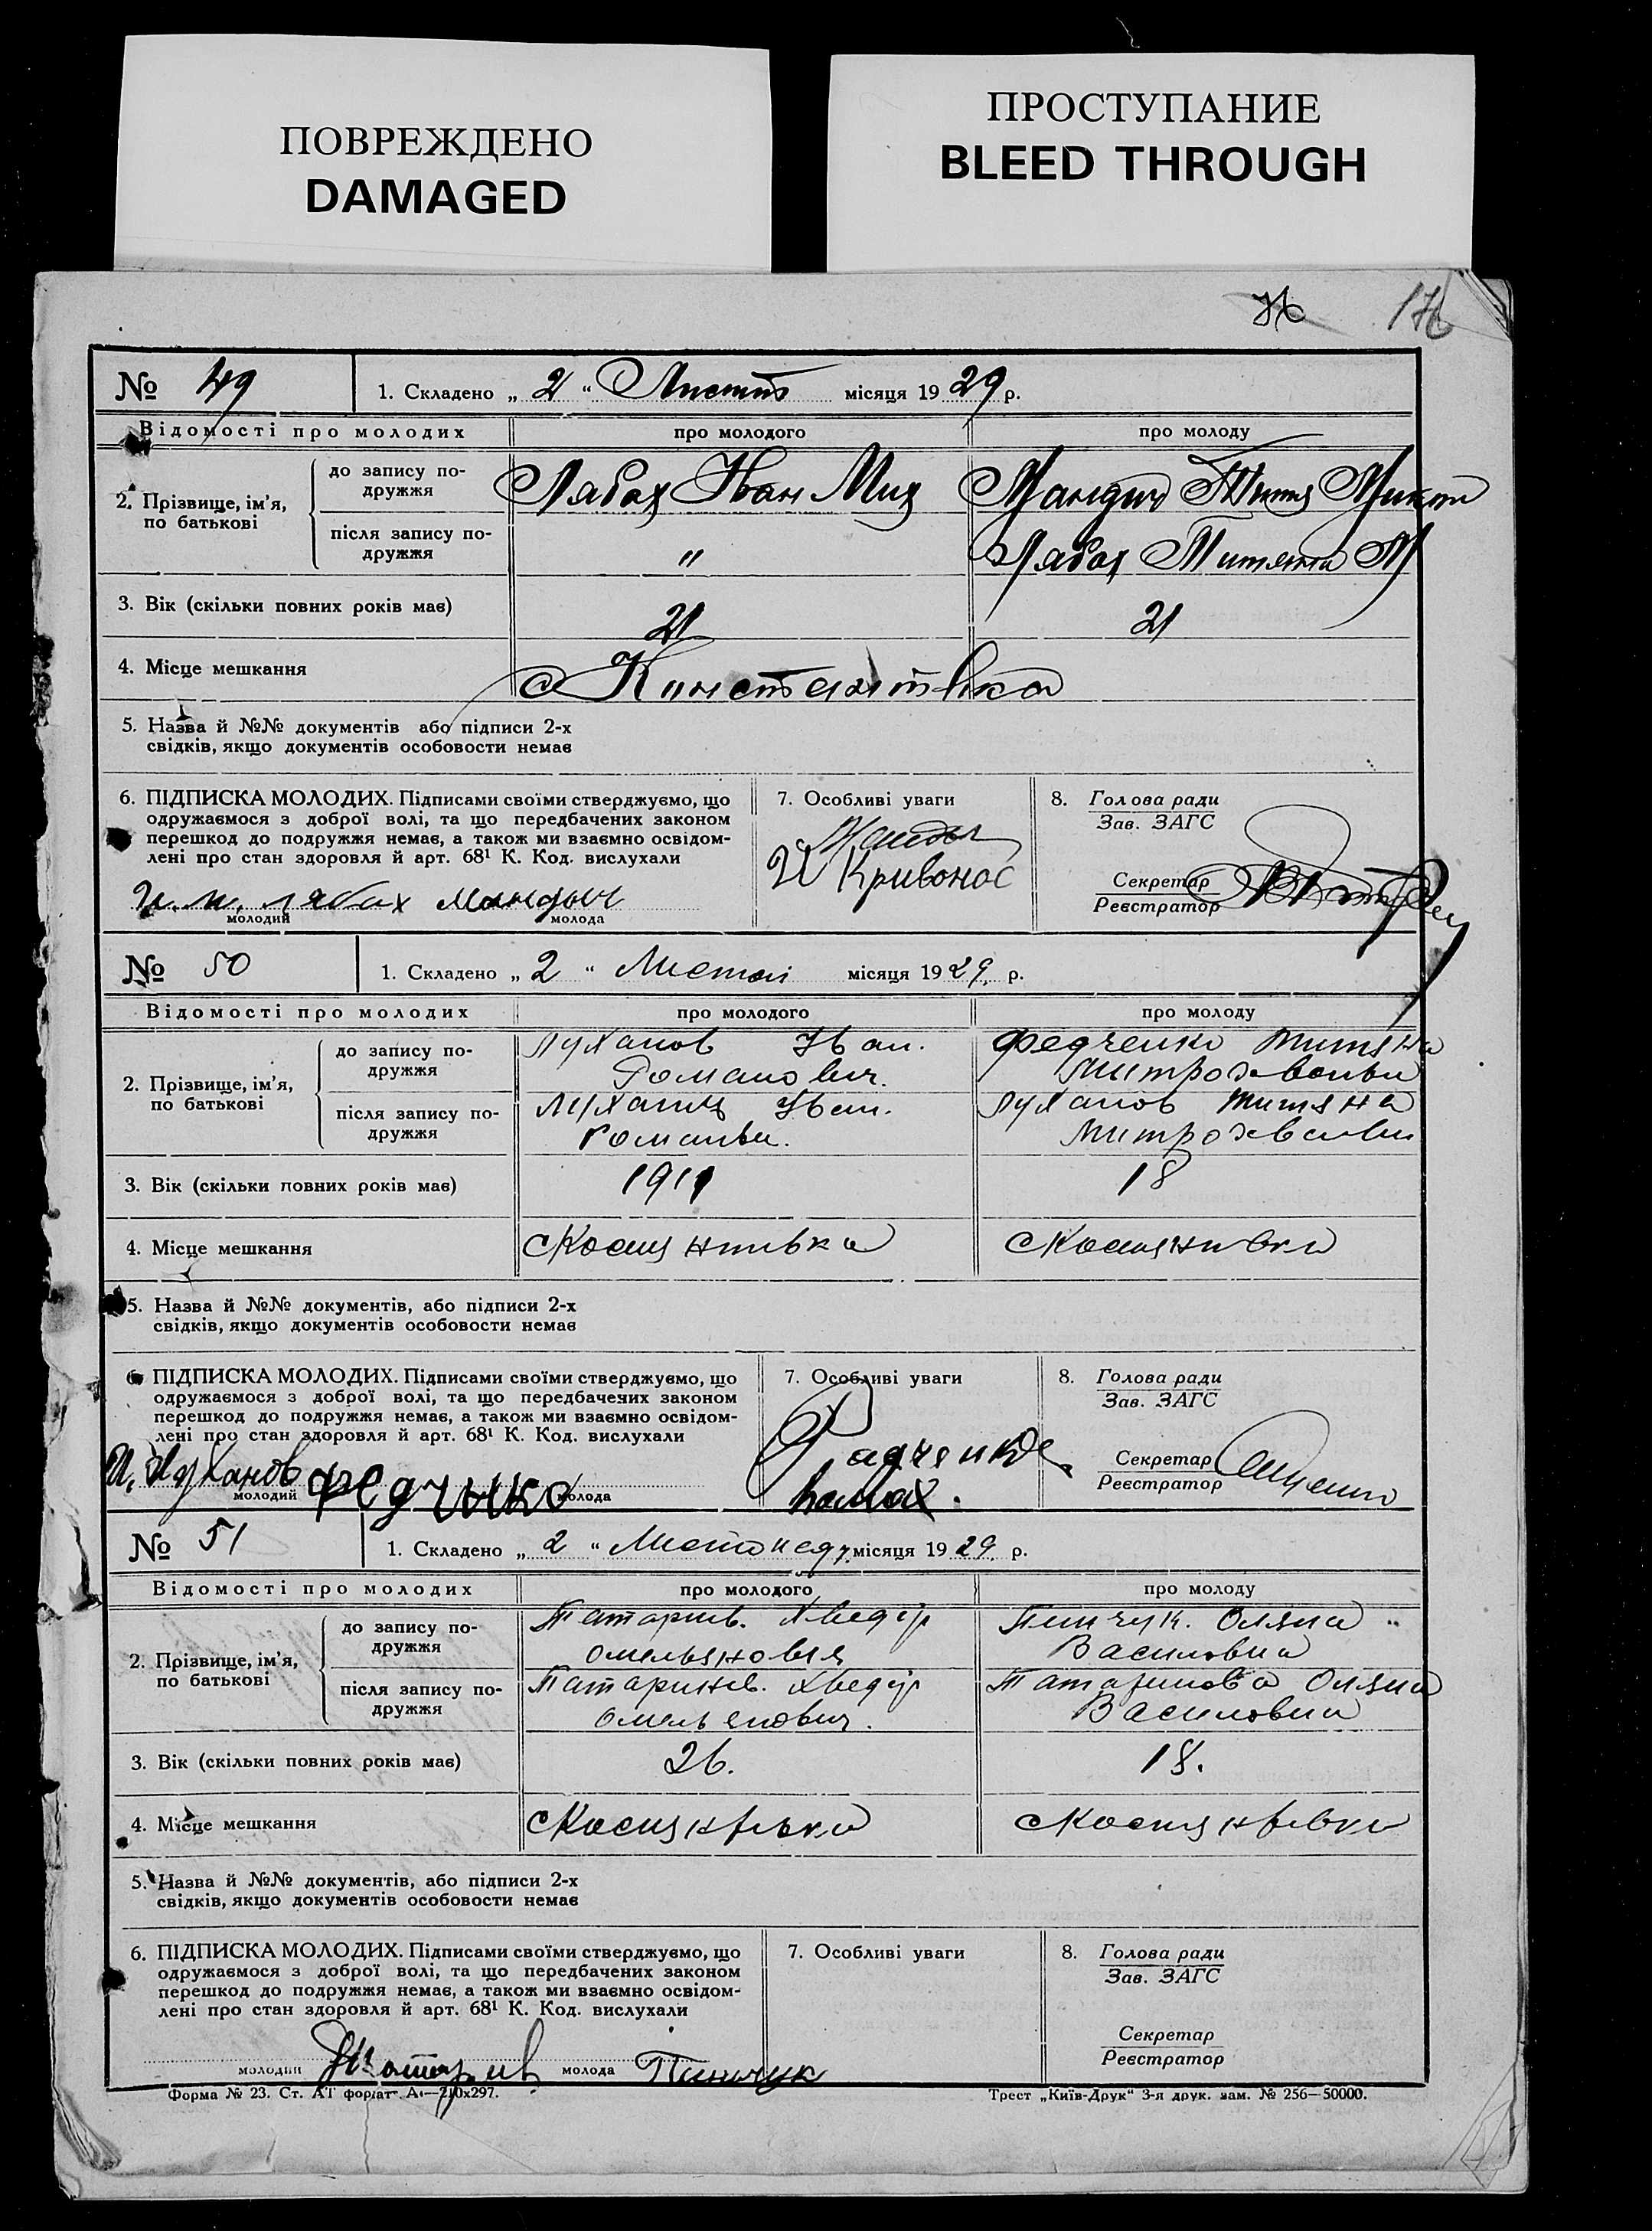 ПОВРЕЖДЕНО
DAMAGED
ПРОСТУПАНИЕ
BLEED THROUGH
176
№ 49
1. Складено „ 2 “ Листоп місяця 1929 р.
Відомості про молодих
про молодого
про молоду
2. Прізвище, ім’я,
по батькові
до запису по-
дружжя
Лябах Іван Мих
після запису по-
дружжя
"
Лябах Титяна М
3. Вік (скільки повних років має)
21
21
4. Місце мешкання
5. Назва й №№ документів або підписи 2-х
свідків, якщо документів особовости немає
6. ПІДПИСКА МОЛОДИХ. Підписами своїми стверджуємо, що
одружаємося з доброї волі, та що передбачених законом
перешкод до подружжя немає, а також ми взаємно освідом-
лені про стан здоровля й арт. 68¹ К. Код. вислухали
И. М. Лябах Мандыч
молодий
молода
7. Особливі уваги
И Кривонос
8. Голова ради
Зав. ЗАГС
Секретар
Реєстратор
№ 50
1. Складено „ 2 “ Листоп місяця 1929. р.
Відомості про молодих
про молодого
про молоду
2. Прізвище, ім’я,
по батькові
до запису по-
дружжя
Луханов Іван.
Романович.
Федченко Титяна
після запису по-
дружжя
Іван.
Луханов Титяна
3. Вік (скільки повних років має)
1911
18
4. Місце мешкання
5. Назва й №№ документів, або підписи 2-х
свідків, якщо документів особовости немає
6. ПІДПИСКА МОЛОДИХ. Підписами своїми стверджуємо, що
одружаємося з доброї волі, та що передбачених законом
перешкод до подружжя немає, а також ми взаємно освідом-
лені про стан здоровля й арт. 68¹ К. Код. вислухали
И. Луханов
молодий
молода
7. Особливі уваги
8. Голова ради
Зав. ЗАГС
Секретар
Реєстратор
№ 51
1. Складено „ 2 “ Листопаду. місяця 1929. р.
Відомості про молодих
про молодого
про молоду
2. Прізвище, ім’я,
по батькові
до запису по-
дружжя
Татарин. Хведір
Омельянович
Пинчук. Оляна
Василовна
після запису по-
дружжя
Хведір
Омельянович.
Татаринова Оляна
Василовна
3. Вік (скільки повних років має)
26.
18.
4. Місце мешкання
5. Назва й №№ документів, або підписи 2-х
свідків, якщо документів особовости немає
6. ПІДПИСКА МОЛОДИХ. Підписами своїми стверджуємо, що
одружаємося з доброї волі, та що передбачених законом
перешкод до подружжя немає, а також ми взаємно освідом-
лені про стан здоровля й арт. 68¹ К. Код. вислухали
молодий
молода Пинчук
7. Особливі уваги
8. Голова ради
Зав. ЗАГС
Секретар
Реєстратор
Форма № 23. Ст. АТ формат А4—210х297.
Трест „Київ-Друк“ 3-я друк. зам. № 256—50000.